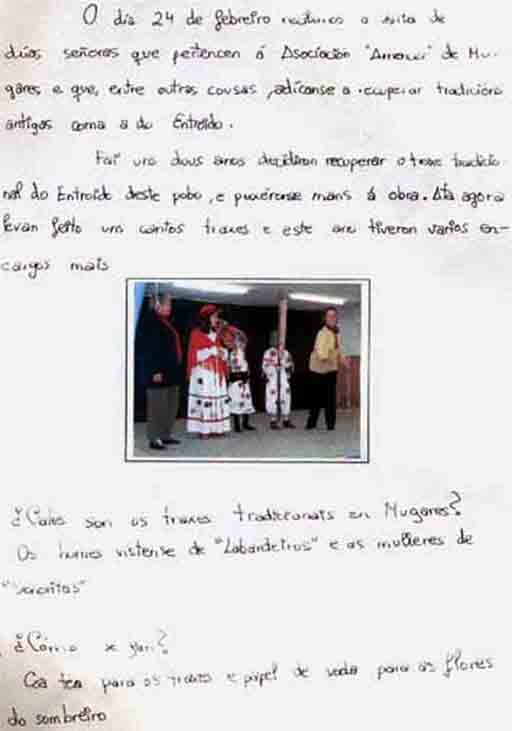 O dia 24 de febreiro tivemos a visita de
dúas señoras que pertencen á Asociación de Mu-
gares e que, entre outras cousas, adícanse a recuperar tradicións
antigas coma a do Entroido.
Fai uns dous anos decidiron recuperar o traxe tradicio
nal do Entroido deste pobo, e puxéronse mans á obra. Ata agora
levan feito uns cantos traxes e este ano tiveron varios en-
cargos mais
¿Cales son os traxes tradicionais en Mugares?
Os homes vístense de "Labardeiros" e as mulleres de
¿Cómo se fan?
Coa tea para os traxes e papel de seda para as flores
do sombreiro